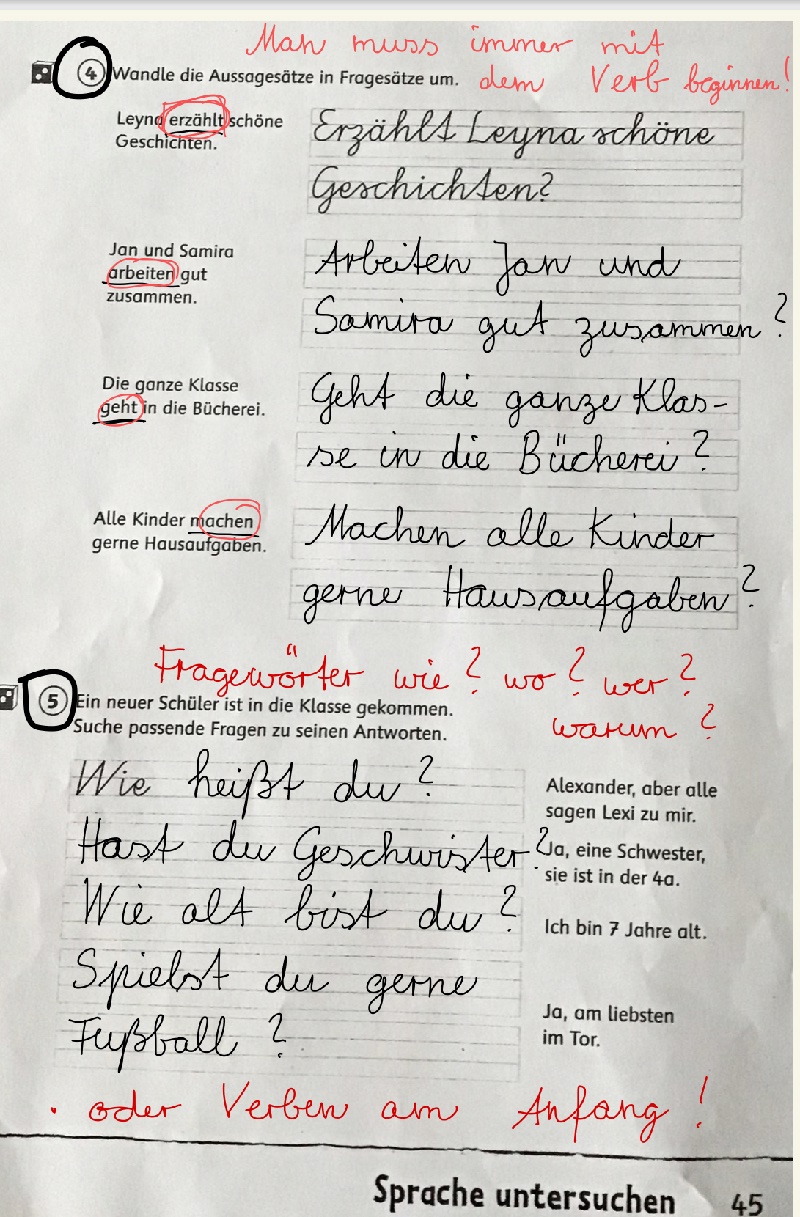 Man muss immer mit
4 Wandle die Aussagesätze in Fragesätze um. dem Verb beginnen!
Leyna erzählt schöne
Geschichten.
Erzählt Leyna schöne
Geschichten?
Jan und Samira
arbeiten gut
zusammen.
Arbeiten Jan und
Samira gut zusammen?
Die ganze Klasse
geht in die Bücherei.
Geht die ganze Klas-
se in die Bücherei?
Alle Kinder machen
gerne Hausaufgaben.
Machen alle Kinder
gerne Hausaufgaben?
Fragewörter wie? wo? wer?
warum?
5 Ein neuer Schüler ist in die Klasse gekommen.
Suche passende Fragen zu seinen Antworten.
Wie heißt du?
Alexander, aber alle
sagen Lexi zu mir.
Hast du Geschwister?
Ja, eine Schwester,
sie ist in der 4a.
Wie alt bist du?
Ich bin 7 Jahre alt.
Spielst du gerne
Fußball?
Ja, am liebsten
im Tor.
· oder Verben am Anfang!
Sprache untersuchen 45